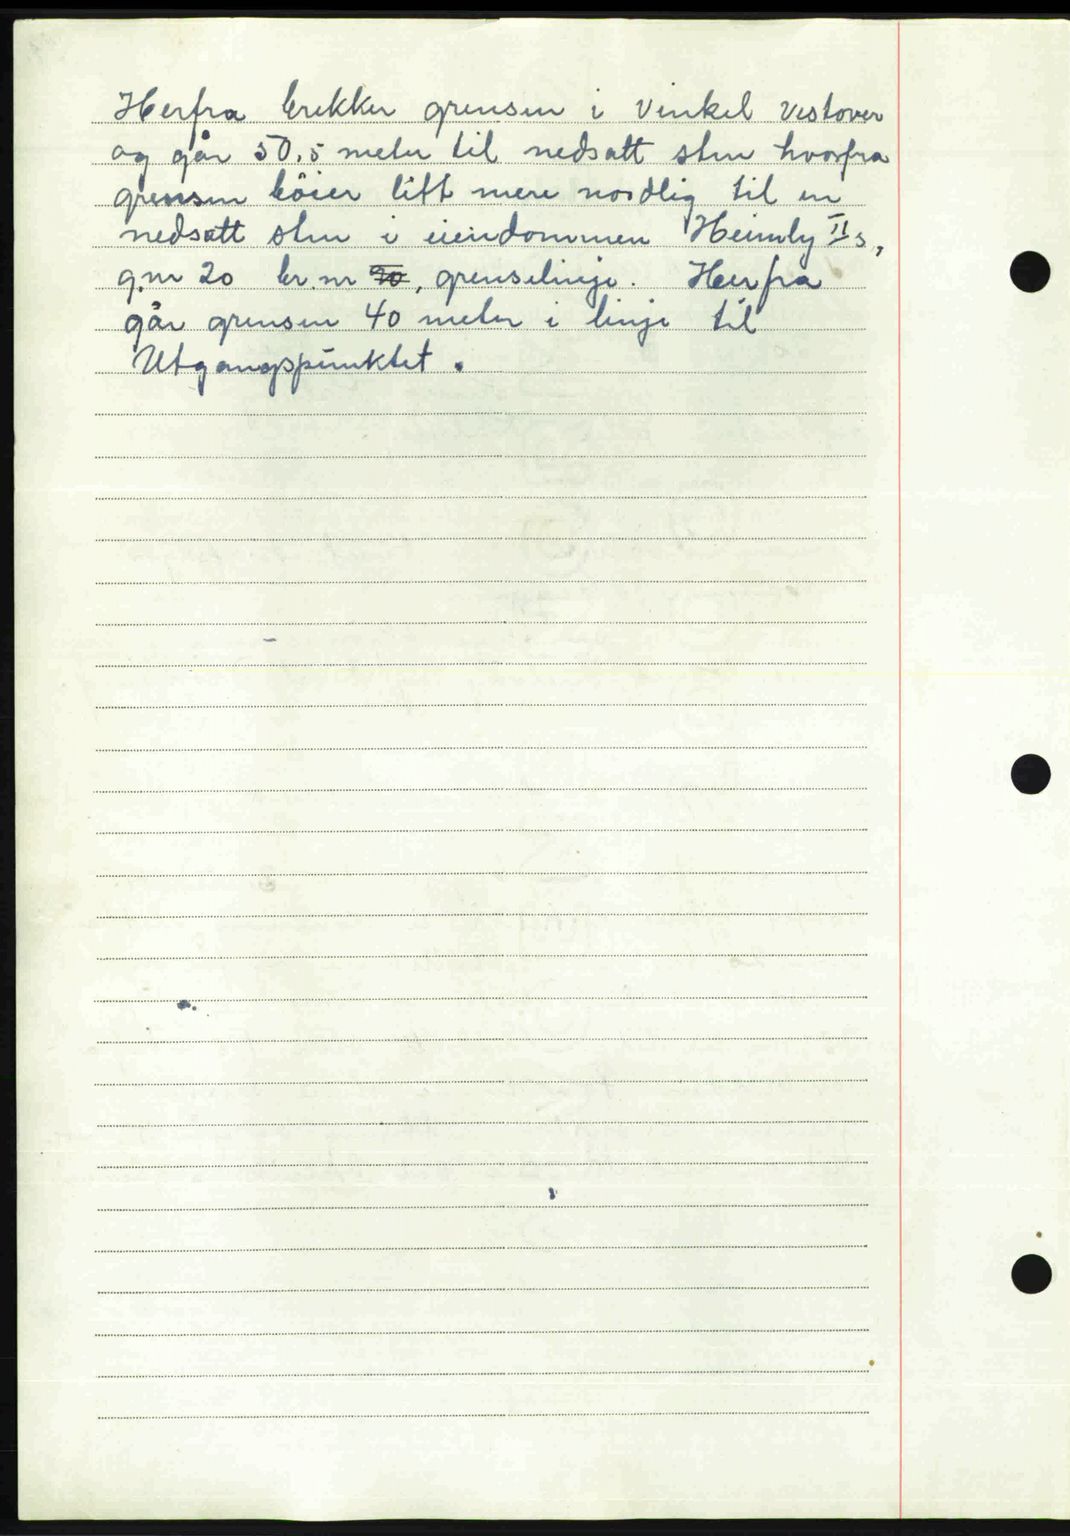 Herfra brekker grensen i vinkel vestover
og går 50,5 meter til nedsatt sten hvorfra
grensen böier litt mere nordlig til en
nedsatt sten i eiendommen Heimly II s,
g.nr 20 br.nr , grenselinje. Herfra
går grensen 40 meter i linje til
Utgangspunktet.